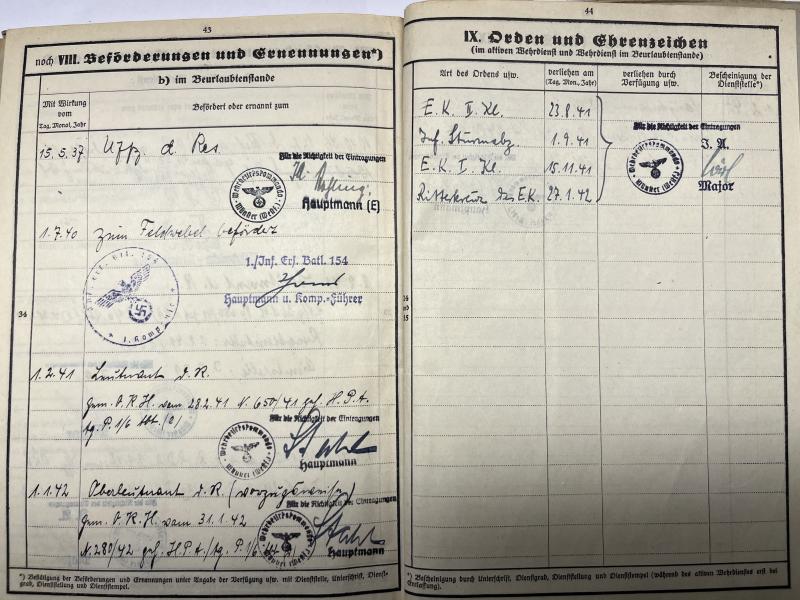 43
noch VIII. Beförderungen und Ernennungen*)
b) im Beurlaubtenstande
Mit Wirkung vom
Tag, Monat, Jahr
Befördert oder ernannt zum
15.5.37 Uffz. d. Res.
Für die Richtigkeit der Eintragungen
Hauptmann (E)
1.7.40 zum Feldwebel befördert
1./Inf. Ers. Batl. 154
Hauptmann u. Komp.-Führer
34
1.2.41 Leutnant d. R.
gem. O.K.H. vom 28.2.41 N. 650/41 geh. H.P.A.
Ag. P. 1/6 Abt. (a)
Für die Richtigkeit der Eintragungen
Hauptmann
1.1.42 Oberleutnant d. R. (vorzugsweise)
Für die Richtigkeit der Eintragungen
gem. O.K.H. vom 31.1.42
N. 280/42 geh. H.P.A./Ag. P. 1/6
Hauptmann
*) Bestätigung der Beförderungen und Ernennungen unter Angabe der Verfügung usw. mit Dienststelle, Unterschrift, Dienst-
grad, Dienststellung und Dienststempel.
44
IX. Orden und Ehrenzeichen
(im aktiven Wehrdienst und Wehrdienst im Beurlaubtenstande)
Art des Ordens usw.
verliehen am
(Tag, Mon., Jahr)
verliehen durch
Verfügung usw.
Bescheinigung der
Dienststelle*)
E.K. II. Kl. 23.8.41
Inf. Sturmabz. 1.9.41
E.K. I. Kl. 15.11.41
Ritterkreuz des E.K. 27.1.42
Für die Richtigkeit der Eintragungen
I. A.
Major
*) Bescheinigung durch Unterschrift, Dienstgrad, Dienststellung und Dienststempel (während des aktiven Wehrdienstes erst bei
Entlassung).